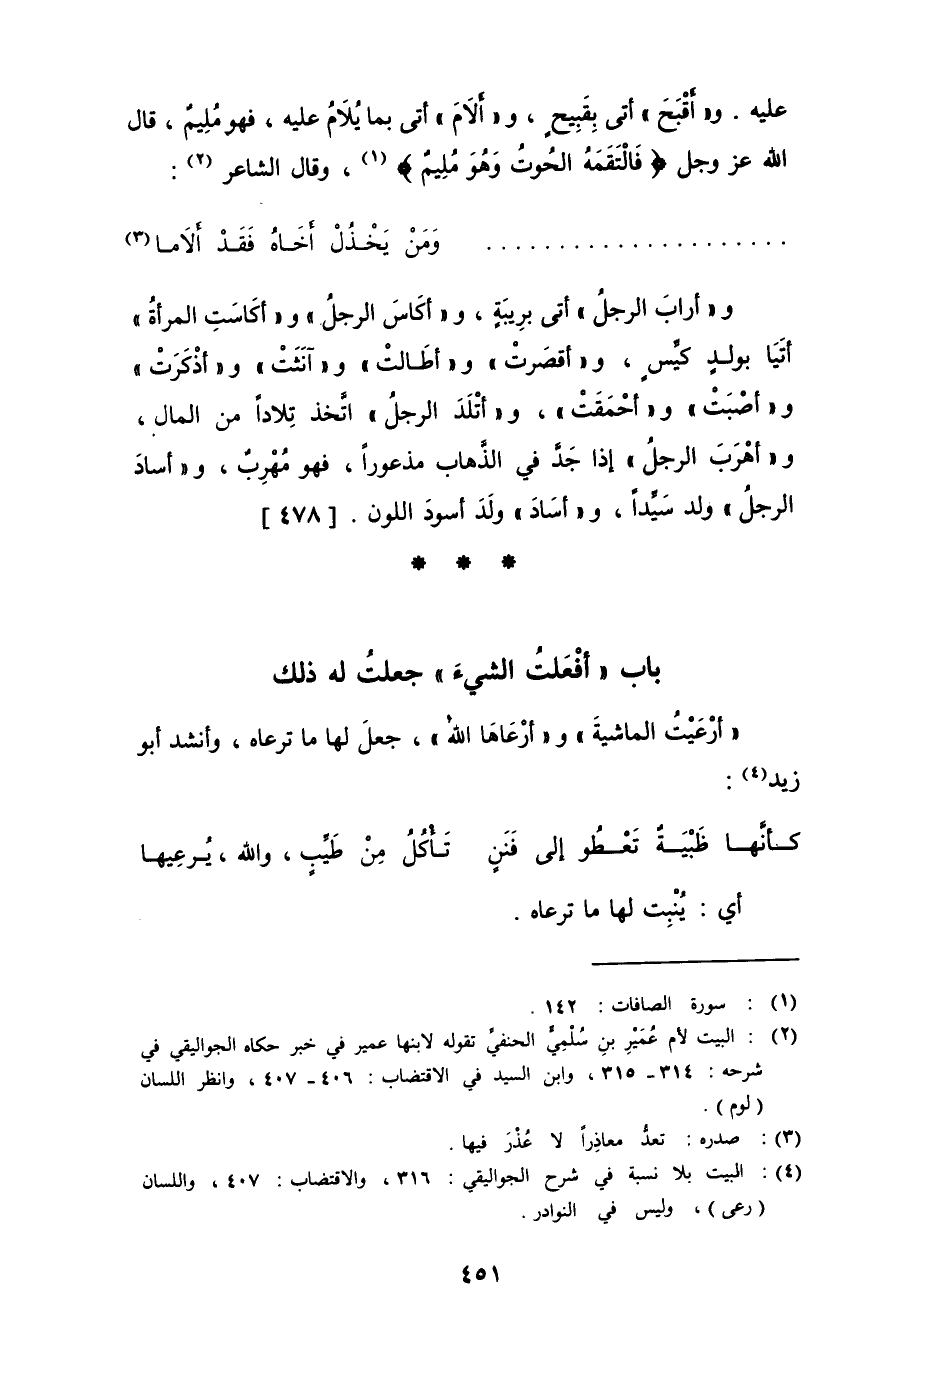 عليه . و« أَقْبَحَ » أتى بِقَبِيحٍ ، و « أَلَامَ » أتى بما يُلَامُ عليه ، فهو مُلِيمٌ ، قال
الله عز وجل ﴿ فَالْتَقَمَهُ الحُوتُ وَهُوَ مُلِيمٌ ﴾ (١) ، وقال الشاعر (٢) :
. . . . . . . . . . . . . . . . . . . . . وَمَنْ يَخْذُلْ أَخَاهُ فَقَدْ أَلَاما (٣)
و « أرابَ الرجلُ » أتى برِيبَةٍ ، و « أكَاسَ الرجلُ » و « أكَاسَتِ المرأةُ »
أتَيَا بولدٍ كيِّسٍ ، و « أقصَرتْ » و « أطَالتْ » و « آنَثَتْ » و « أذْكَرَتْ »
و « أصْبَتْ » و « أحْمَقَتْ » ، و « أتْلَدَ الرجلُ » اتَّخذ تِلاداً من المال ،
و « أهْرَبَ الرجلُ » إذا جَدَّ في الذَّهاب مذعوراً ، فهو مُهْرِبٌ ، و « أسادَ
الرجلُ » ولد سَيِّداً ، و « أسَادَ » ولَدَ أسودَ اللون . [ ٤٧٨ ]
* * *
باب « أفْعَلتُ الشيءَ » جعلتُ له ذلك
« أرْعَيْتُ الماشيةَ » و « أرْعَاهَا اللهُ » ، جعلَ لها ما ترعاه ، وأنشد أبو
زيد (٤) :
كأنَّها ظَبْيَةٌ تَعْطُو إلى فَنَنٍ تَأْكُلُ مِنْ طَيِّبٍ ، والله ، يُرعِيها
أي : يُنْبِت لها ما ترعاه .
(١) : سورة الصافات : ١٤٢ .
(٢) : البيت لأم عُمَيْرِ بنِ سُلْمِيٍّ الحنفيِّ تقوله لابنها عمير في خبر حكاه الجواليقي في
شرحه : ٣١٤ ـ ٣١٥ ، وابن السيد في الاقتضاب : ٤٠٦ ـ ٤٠٧ ، وانظر اللسان
( لوم ) .
(٣) : صدره : تعدُّ معاذِراً لا عُذْرَ فيها .
(٤) : البيت بلا نسبة في شرح الجواليقي : ٣١٦ ، والاقتضاب : ٤٠٧ ، واللسان
( رعى ) ، وليس في النوادر .
٤٥١